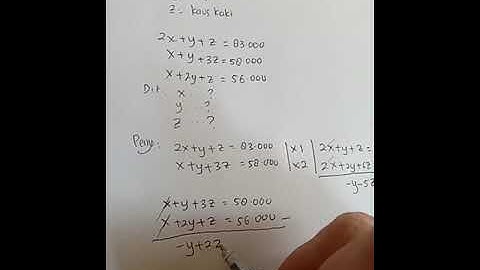 z = kaus kaki
2x + y + z = 83.000
x + y + 3z = 58.000
x + 2y + z = 56.000
Dit x ?
y ?
z ?
Peny: 2x + y + z = 83.000 | x1 | 2x + y + z =
x + y + 3z = 58.000 | x2 | 2x + 2y + 6z
-y - 5z
x + y + 3z = 58.000
x + 2y + z = 56.000 -
-y + 2z